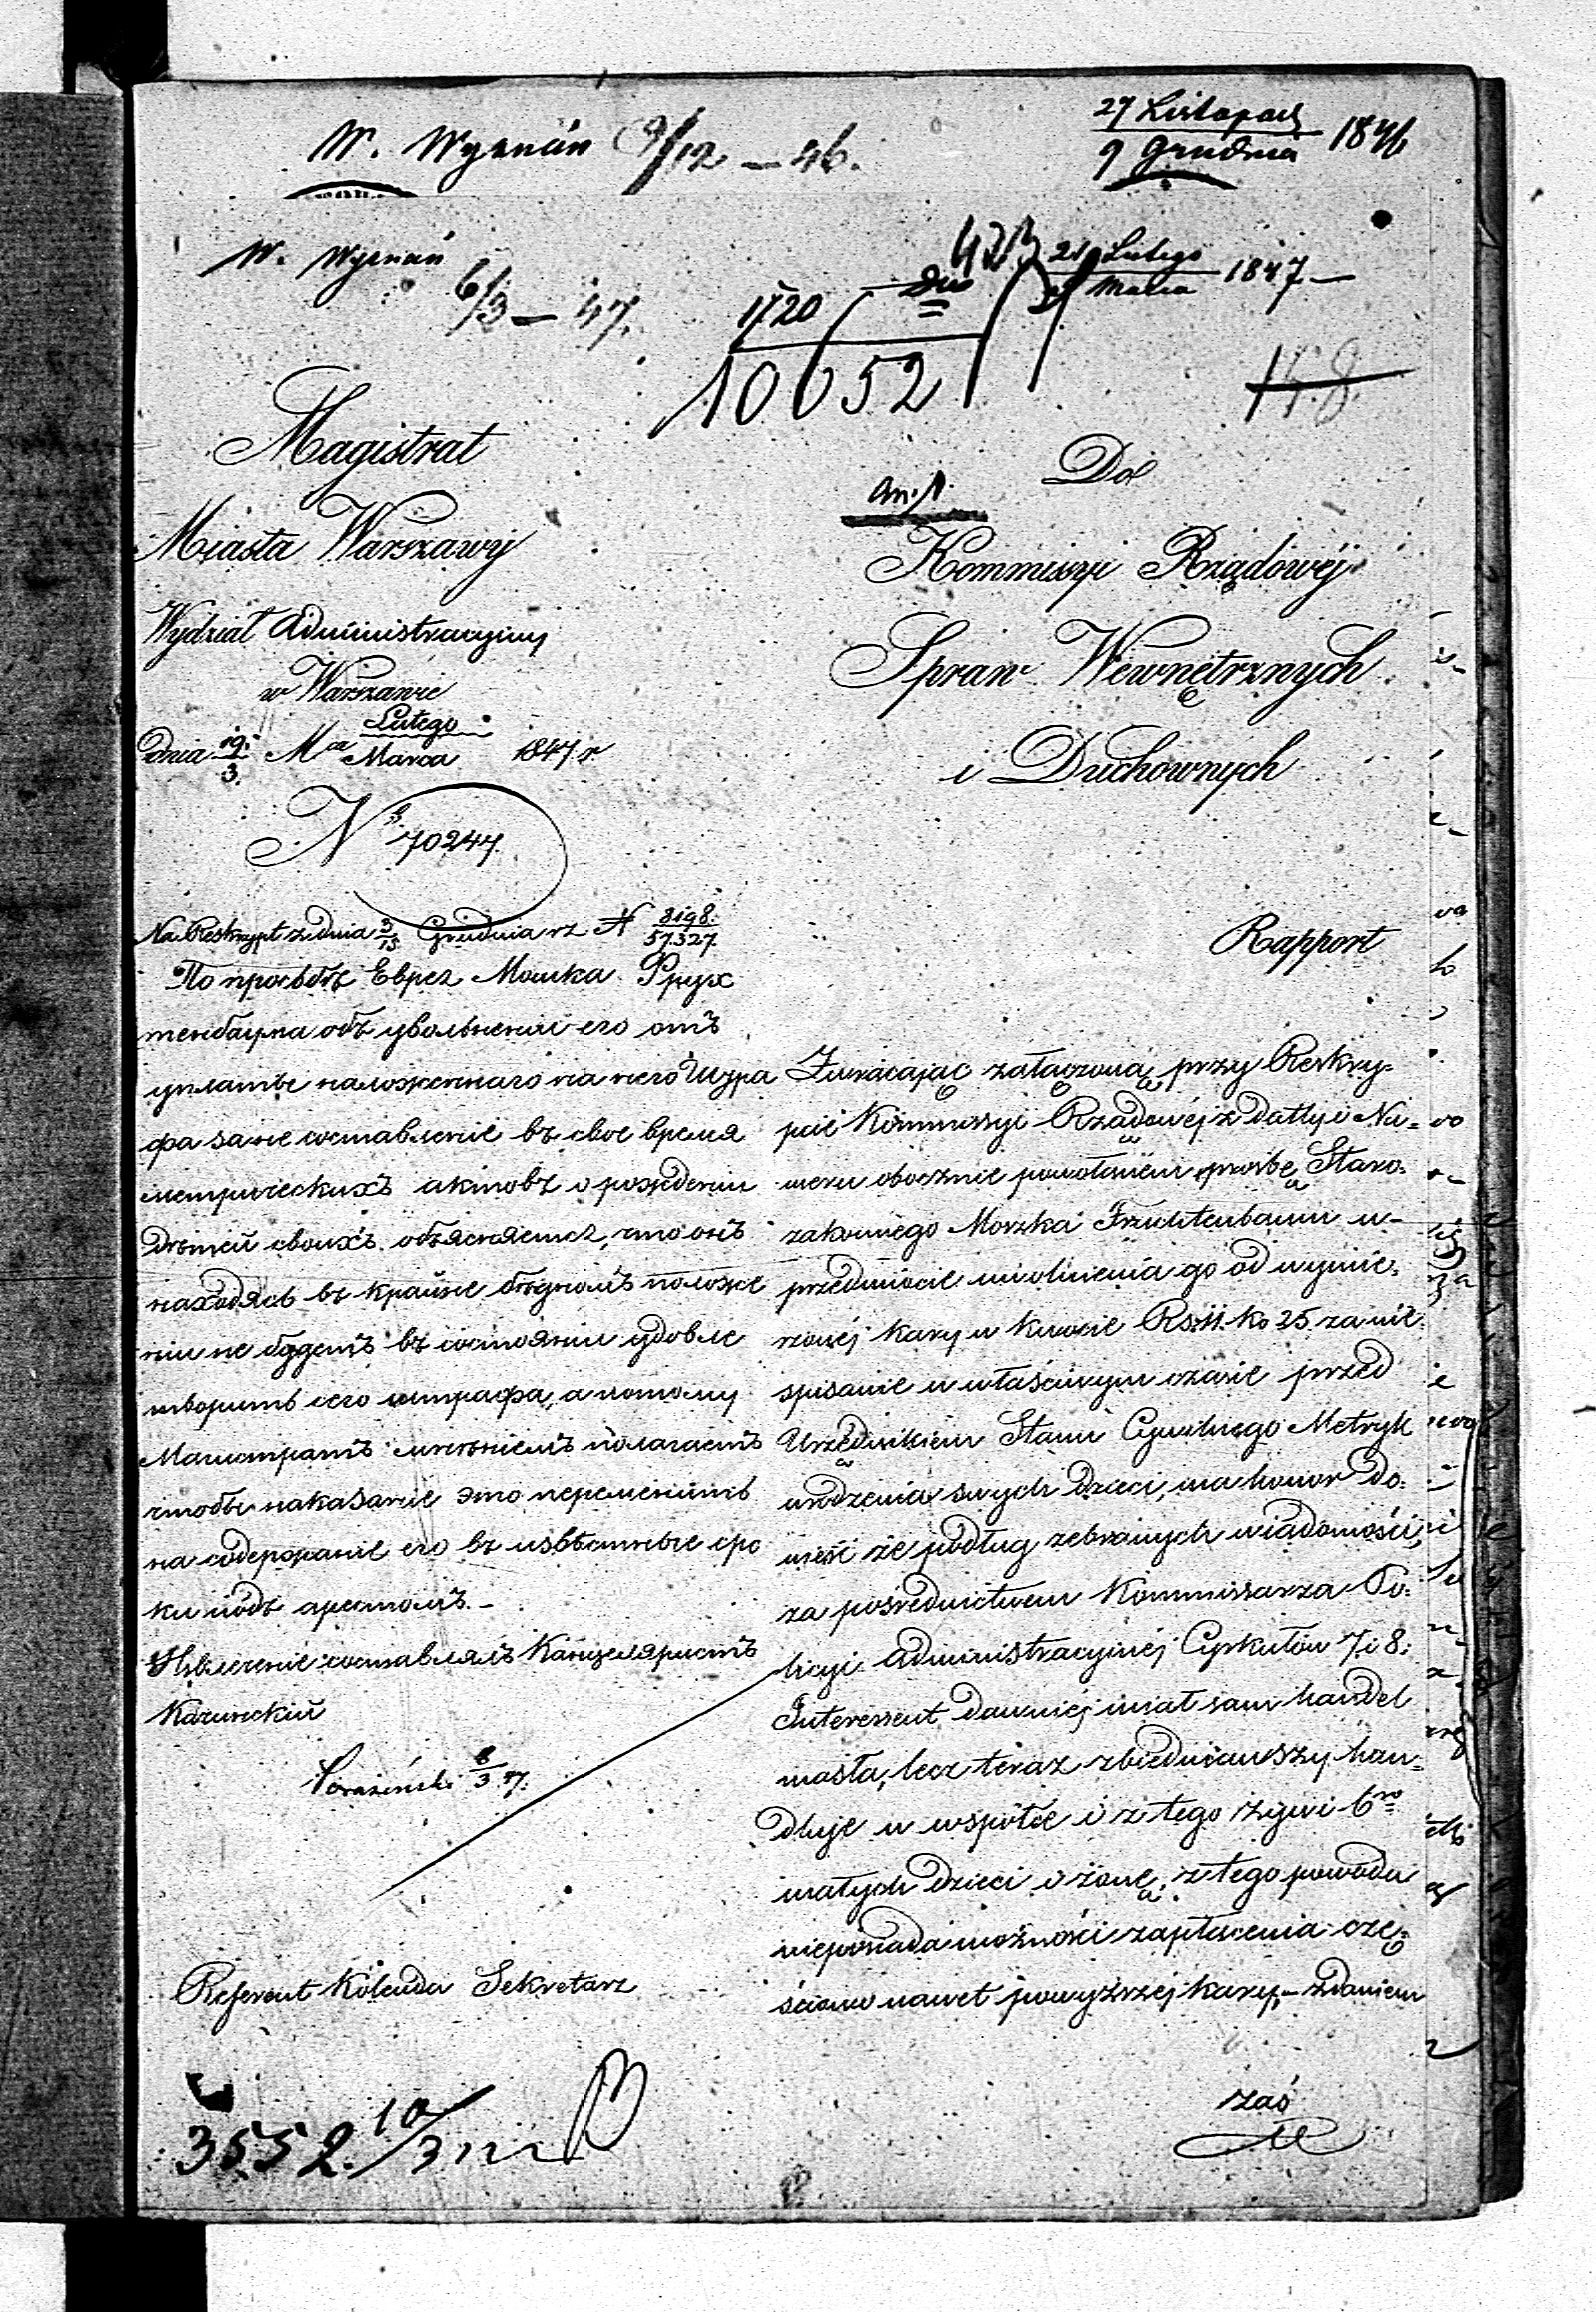 W. Wyznań 9/12 – 46.
27 Listopad
9 Grudnia 1846
W. Wyznań
6/3 – 47.
1720
10652
21 Lutego
Marca 1847 –
Magistrat
Miasta Warszawy
Wydział Administracyjny
w Warszawie
Dnia 19/3 Mca Lutego/Marca 1847 r
N 70247
Na Reskrypt z dnia 3/15 Grudnia rz N 8198/57327
По просьбѣ Еврея Мошка Фрух
тенбаума объ увольненіи его отъ
уплаты наложеннаго на него Штра
фа за не составленіе въ свое время
метрическихъ актовъ о рожденіи
дѣтей своихъ. объясняется, что онъ
находясь въ крайне бѣдномъ положе
ніи не будетъ въ состояніи удовле
творить сего штрафа, а потому
Магистратъ мнѣніемъ полагаетъ
чтобы наказаніе это перемѣнить
на содержаніе его въ извѣстные сро
ки подъ арестомъ. –
Извлеченіе составлялъ Канцеляристъ
6/3 47.
Referent Kolenda Sekretarz
3552. 10/3
Do
Kommissyi Rządowéj
Spraw Wewnętrznych
i Duchownych
Rapport
Zwracając załączoną przy Reskry-
pcie Kommissyi Rządowéj z datty i Nu-
meru obocznie powołanem prośbę Staro-
zakonnego Moszka Fruchtenbaum w-
przedmiocie uwolnienia go od wymie-
rzonéj kary w kwocie Rs. 25 za nie
spisanie w właściwym czasie przed
Urzędnikiem Stanu Cywilnego Metryk
urodzenia swych dzieci, ma honor do-
nieść że podług zebranych wiadomości,
za pośrednictwem Kommissarza Po-
licyi Administracyjnéj Cyrkułów 7 i 8.
Interessent dawniéj miał sam handel
masła, lecz teraz zbiedniawszy han-
dluje w wspólce i z tego żywi 6ro
małych dzieci i żonę, z tego powodu
nieposiada możności zapłacenia czę-
ściowo nawet powyższéj kary, – zdaniem
zaś